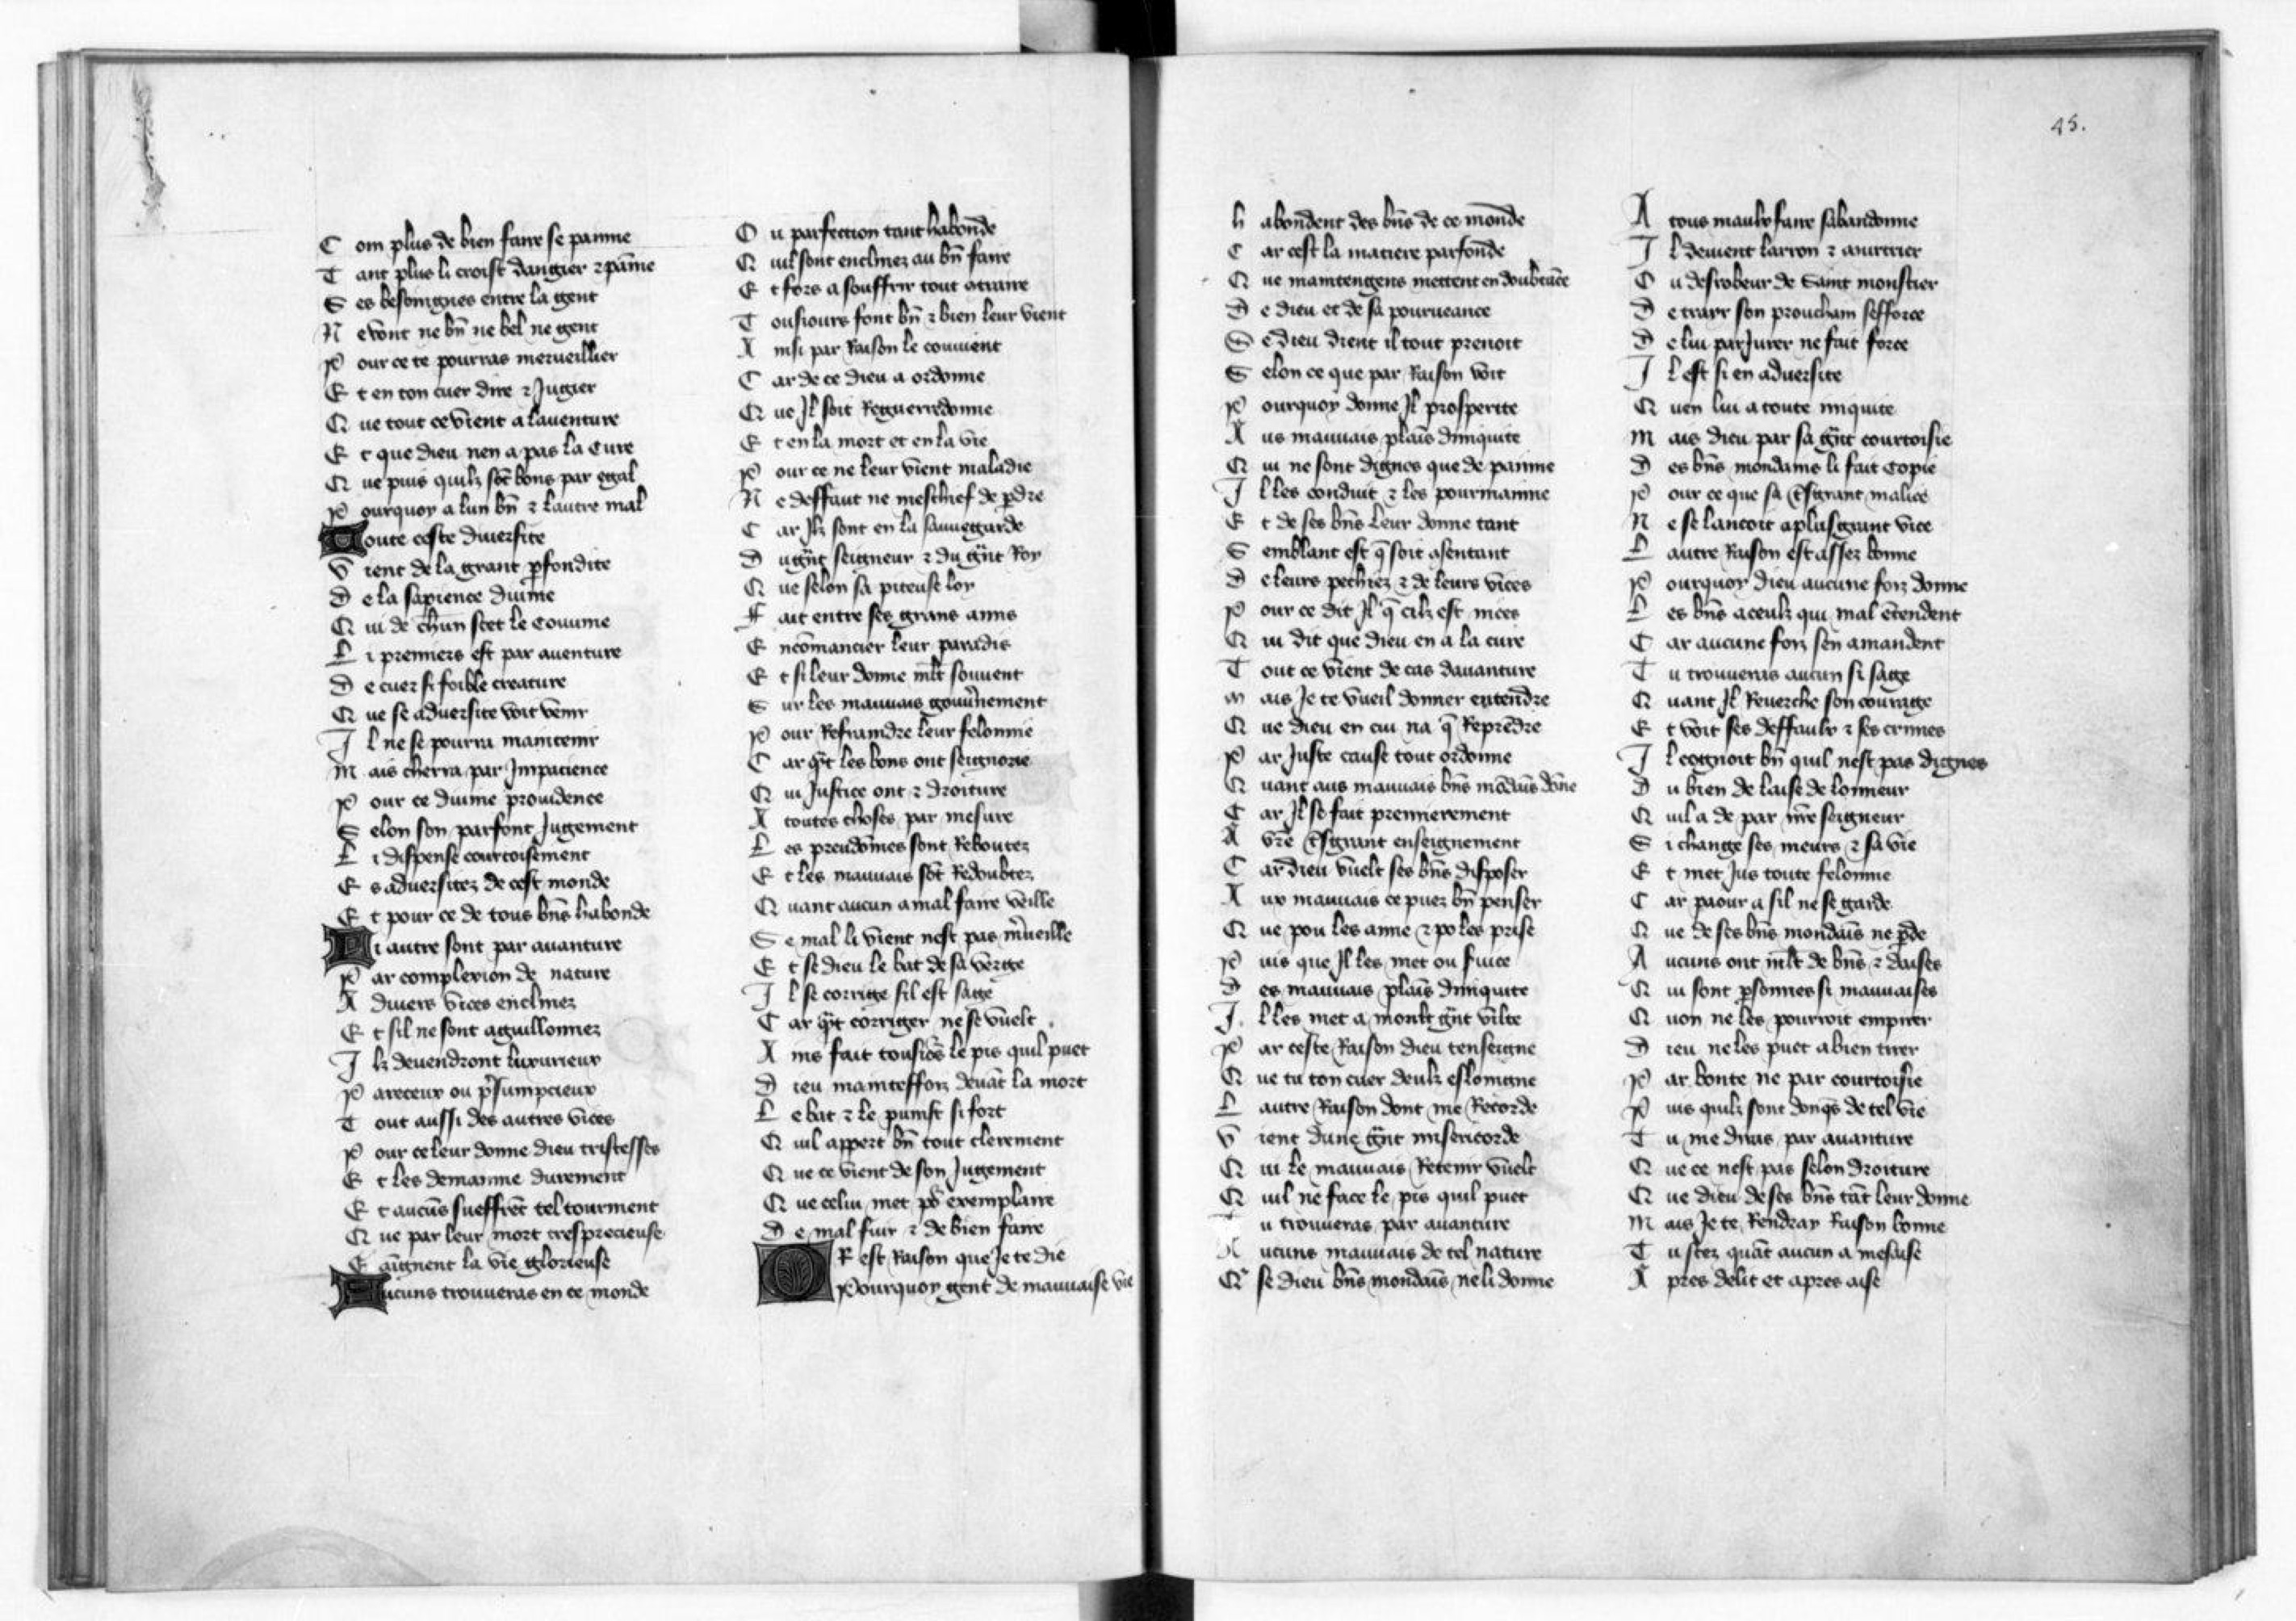 C om plus de bien faire se painne
T ant plus li croist dangier ⁊ pāine
S es besoingnes entre la gent
N e vont ne bn̄ ne bel ne gent
P our ce te pourras merueillier
E t en ton cuer dire ⁊ Jugier
Q ue tout ce vient a lauenture
E t que dieu nen a pas la Cure
Q ue puis quilz sōt bons par egal
P ourquoy a lun bn̄ ⁊ lautre mal
Toute ceste diuersite
V ient de la grant ꝑfondite
D e la sapience diuine
Q ui de chūn scet le Couuine
L i premiers est par auenture
D e cuer si foible creature
Q ue se aduersite voit venir
J l ne se pourra maintenir
M ais cherra par Jmpacience
P our ce diuine prouidence
S elon son parfont Jugement
L i dispense courtoisement
E s aduersitez de cest monde
E t pour ce de tous bn̄s habonde
Li autre sont par auanture
P ar complexion de nature
A diuers vices enclinez
E t sil ne sont aguillonnez
J lz deuendront luxurieux
P areceux ou p̄sumpcieux
T out aussi des autres vices
P our ce leur donne dieu tristesses
E t les demainne durement
E t aucūs sueffrēt tel tourment
Q ue par leur mort tresprecieuse
G aignent la vie glorieuse
Aucuns trouueras en ce monde
O u parfection tant habōde
Q uil sont enclinez au bn̄ faire
E t fors a souffrir tout atraire
T ousiours font bn̄ ⁊ bien leur vient
A insi par Raison le conuient
C ar de ce dieu a ordonne
Q ue Jl soit Reguerredonne
E t en la mort et en la vie
P our ce ne leur vient maladie
N e deffaut ne meschief de ꝑdre
C ar Jlz sont en la sauuegarde
D u gr̄nt seigneur ⁊ du gr̄nt Roy
Q ue selon sa piteuse loy
F ait entre ses grans amis
E ncōmancier leur paradis
E t si leur donne ml̄t souuent
S ur les mauuais gouu̾nement
P our Refraindre leur felonnie
C ar qn̄t les bons ont seignorie
Q ui Justice ont ⁊ droiture
A toutes choses par mesure
L es preudōmes sont Reboutez
E t les mauuais sōt Redoubtez
Q uant aucun a mal faire veille
S e mal li vient nest pas m̾ueille
E t se dieu le bat de sa verge
J l se corrige sil est sage
C ar qn̄t corriger ne se vuelt
A ins fait tousio͛s le pis quil puet
D ieu mainteffoiz deuāt la mort
L e bat ⁊ le punist si fort
Q uil appert bn̄ tout clerement
Q ue ce vient de son Jugement
Q ue celui met po͛ exemplaire
D e mal fuir ⁊ de bien faire
OR est Raison que Je te die
Pourquoy gent de mauuaise vie
45.
h abondent des bn̄s de ce monde
C ar cest la matiere parfonde
Q ue maintengens mettent en doubtāce
D e dieu et de sa pourueance
S e dieu dient il tout preuoit
S elon ce que par Raison voit
P ourquoy donne Jl prosperite
A us mauuais plais diniquite
Q ui ne sont dignes que de painne
J l les conduit ⁊ les pourmainne
E t de ses bn̄s leur donne tant
S emblant est q̄ soit asentant
D e leurs pechiez ⁊ de leurs vices
P our ce dit Jl q̄ cilz est nices
Q ui dit que dieu en a la cure
T out ce vient de cas dauanture
M ais Je te vueil donner entendre
Q ue dieu en cui na q̄ Reprēdre
P ar Juste cause tout ordonne
Q uant aus mauuais bn̄s mōdaīs dōne
C ar Jl se fait premierement
A vr̄e t̄sgrant enseignement
C ar dieu vuelt ses bn̄s disposer
A ux mauuais ce puez bn̄ penser
Q ue pou les aime ⁊ po les prise
P uis que Jl les met ou fuice
D es mauuais plais diniquite
J l les met a moult gr̄nt vilte
P ar ceste Raison dieu tenseigne
Q ue tu ton cuer deulz eslongne
L autre Raison dont me Recorde
V ient dune gr̄nt misericorde
Q ui le mauuais Retenir vuelt
Q uil ne face le pis quil puet
T u trouueras par auanture
A ucuns mauuais de tel nature
Q͛ se dieu bn̄s mondaīs ne li donne
A tous maulx faire sabandonne
J l deuient larron ⁊ murtrier
O u desrobeur de Saint monstier
D e trair son prouchain sefforce
D e lui parJurer ne fait force
J l est si en aduersite
Q uen lui a toute iniquite
M ais dieu par sa gr̄nt courtoisie
D es bn̄s mondains li fait Copie
P our ce que sa t̄sgrant malice
N e se lancoit a plusgrant vice
L autre Raison est assez bonne
P ourquoy dieu aucune foiz donne
L es bn̄s a ceulz qui mal ētendent
C ar aucune foiz sen amandent
T u trouueras aucun si sage
Q uant Jl Reuerche son courage
E t voit ses deffaulx ⁊ ses crimes
J l cognoit bn̄ quil nest pas dignes
D u bien de laise de lonneur
Q uil a de par nr̄e seigneur
S i change ses meurs ⁊ sa vie
E t met Jus toute felonnie
C ar paour a sil ne se garde
Q ue de ses bn̄s mondaīs ne ꝑde
A ucuns ont ml̄t de bn̄s ⁊ daises
Q ui sont ꝑsonnes si mauuaises
Q uon ne les pourroit empirer
D ieu ne les puet a bien tirer
P ar bonte ne par courtoisie
P uis quilz sont donq̄s de tel vie
T u me diras par auanture
Q ue ce nest pas selon droiture
Q ue dieu de ses bn̄s tāt leur donne
M ais Je te Rendray Raison bonne
T u scez quāt aucun a mesaise
A pres delit et apres aise